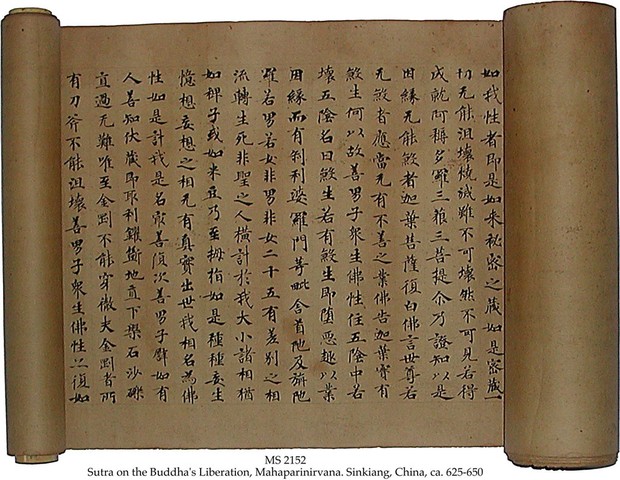 如我性者即是如來祕密之藏如是密藏一
切无能沮壞燒滅雖不可壞然不可見若得
成就阿耨多羅三藐三菩提尒乃證知以是
因緣无能煞者迦葉菩薩復白佛言世尊若
无煞者應當无有不善之業佛告迦葉實有
煞生何以故善男子衆生佛性住五陰中若
壞五陰名曰煞生若有煞生即墮惡趣以業
因緣而有刹利婆羅門等毗舍首陁及旃陁
羅若男若女非男非女二十五有差別之相
流轉生死非聖之人橫計於我大小諸相猶
如稗子或如米豆乃至拇指如是種種妄生
憶想妄想之相无有真實出世我相名為佛
性如是計我是名最善復次善男子譬如有
人善知伏藏即取利钁斸地直下槃石沙礫
直過无難唯至金剛不能穿徹夫金剛者所
有刀斧不能沮壞善男子衆生佛性亦復如
MS 2152
Sutra on the Buddha's Liberation, Mahaparinirvana. Sinkiang, China, ca. 625-650